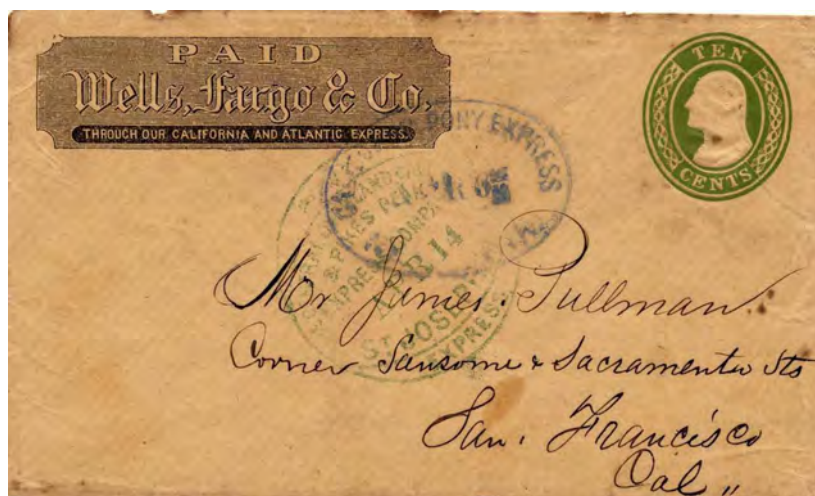 PAID
Wells, Fargo & Co.
THROUGH OUR CALIFORNIA AND ATLANTIC EXPRESS.
TEN
CENTS
PONY EXPRESS
& PIKES PEAK
EXPRESS COMPANY
14
ST JOSEPH
EXPRESS
Mr James. Pullman.
Corner Sansome & Sacramento Sts
San. Francisco
Cal "